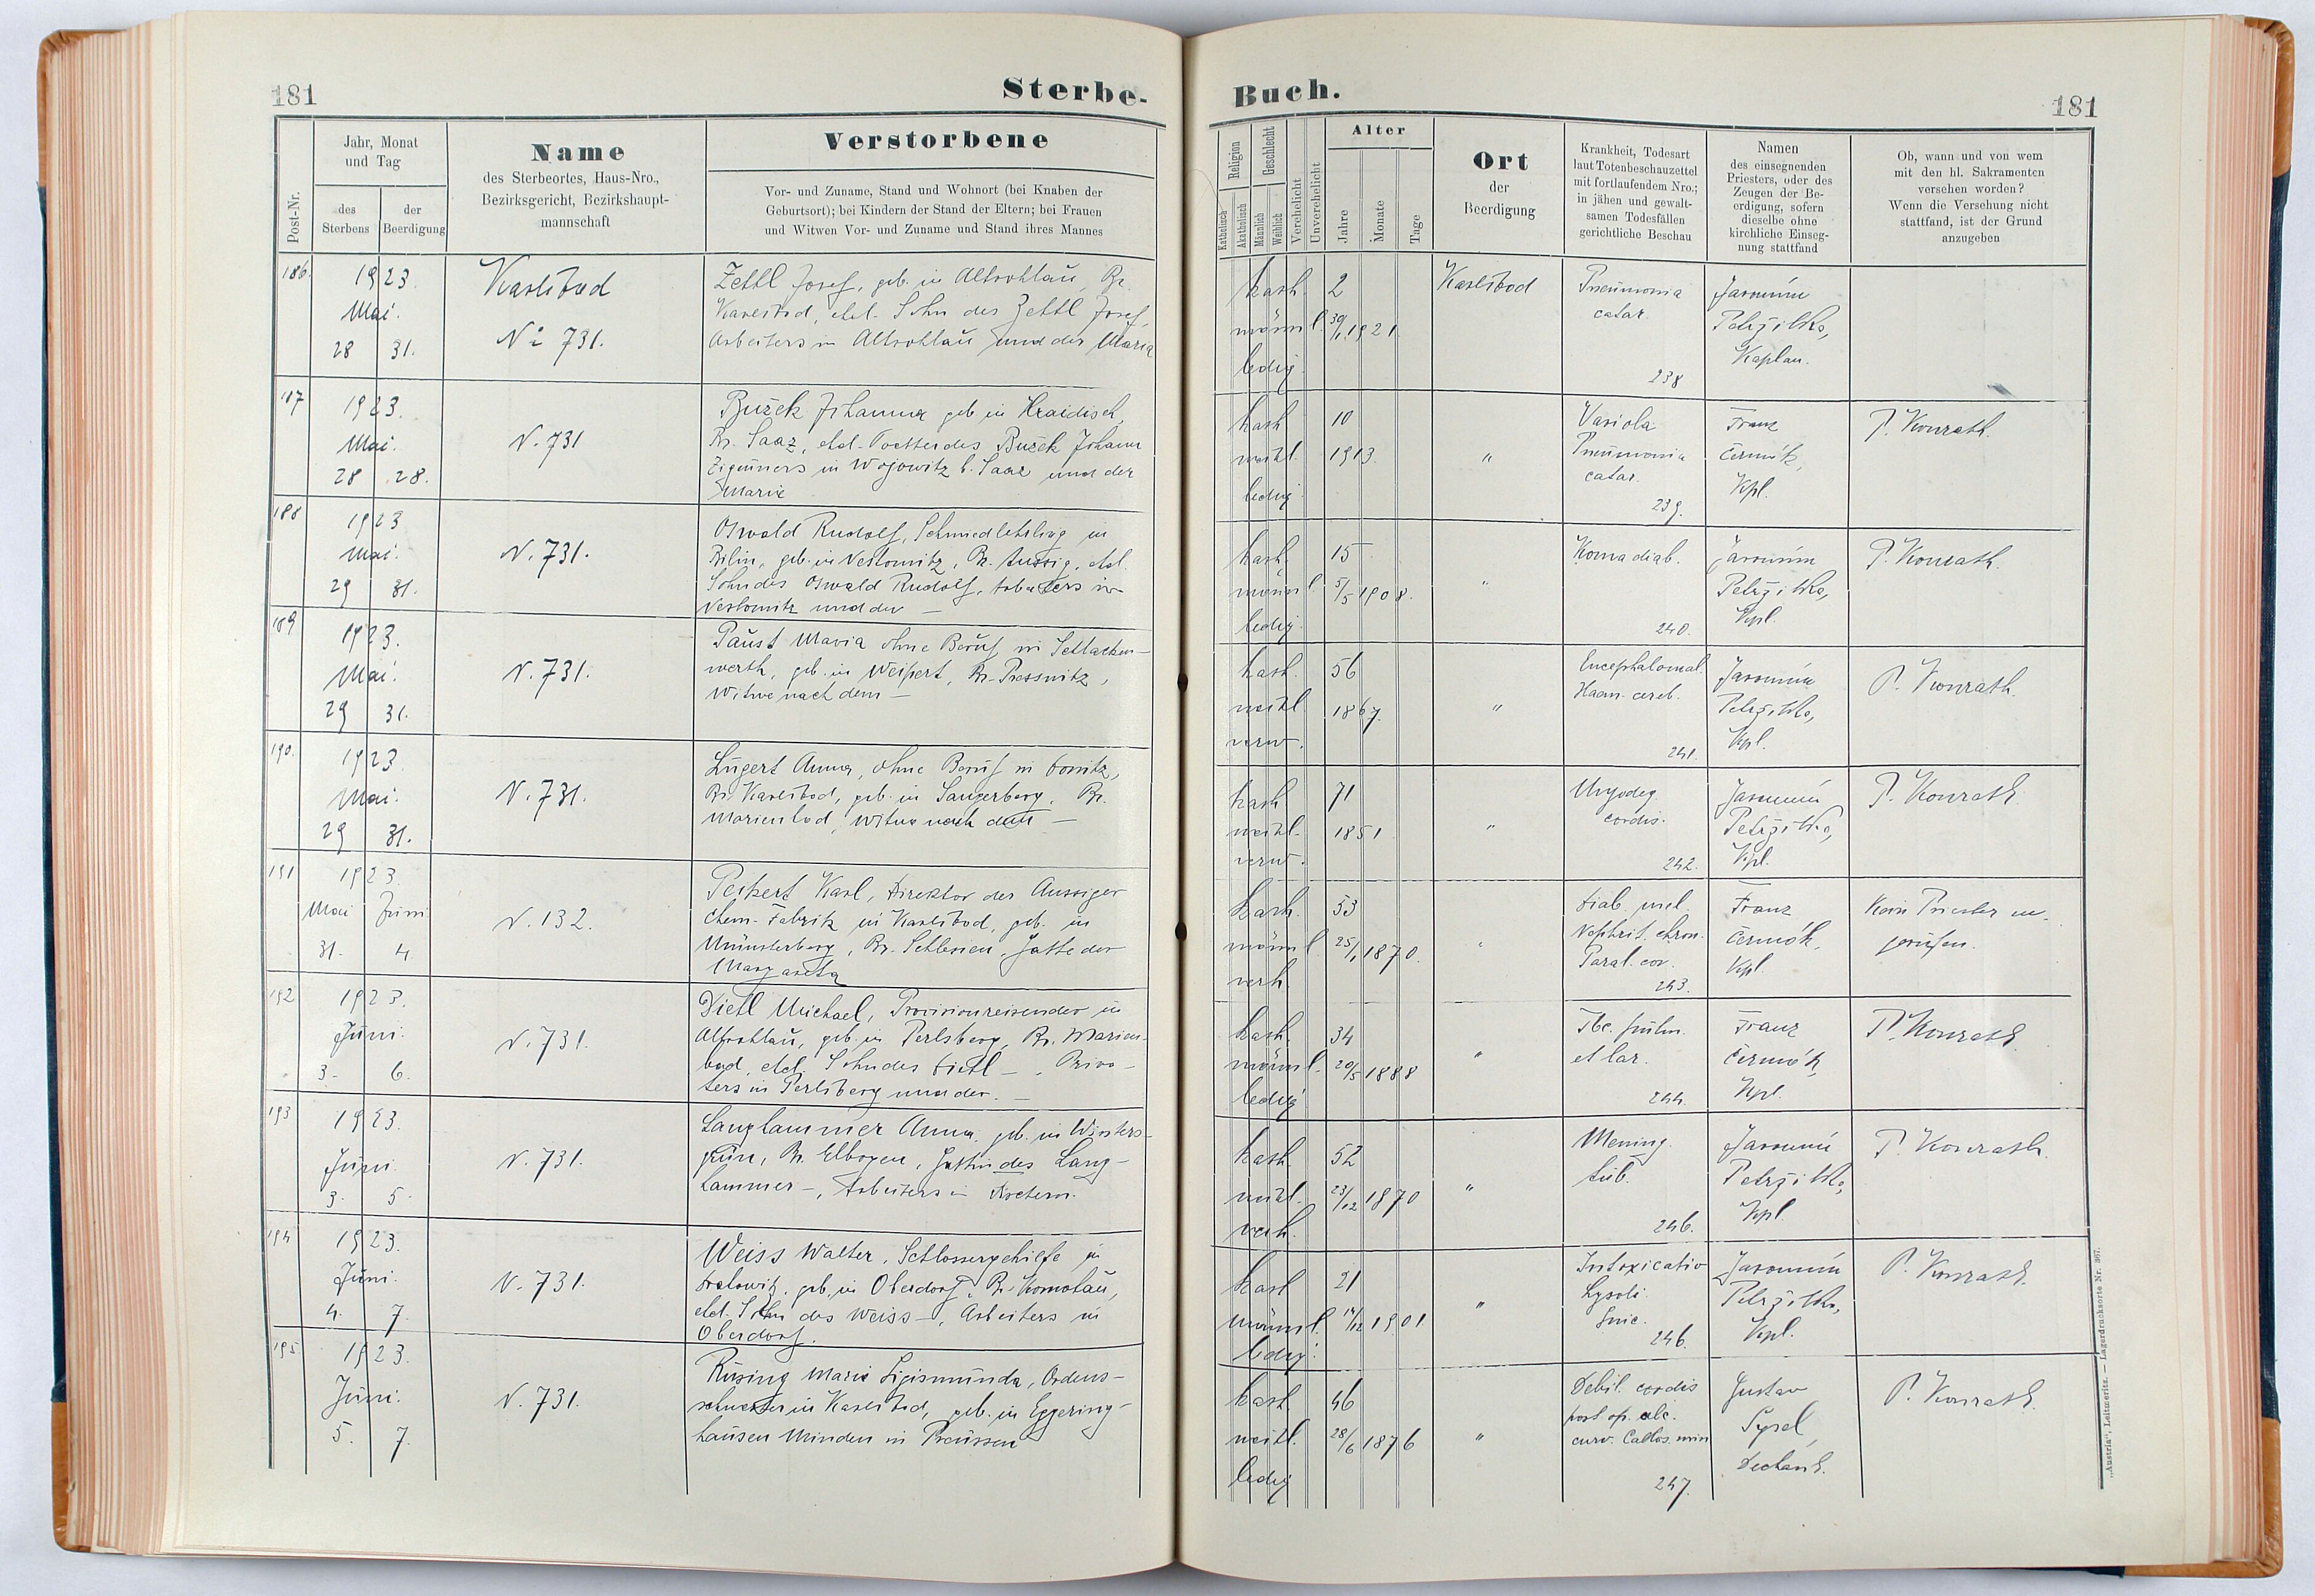 181
Sterbe-
Post-Nr.
Jahr, Monat
und Tag
des
Sterbens
der
Beerdigung
Name
des Sterbeortes, Haus-Nro.,
Bezirksgericht, Bezirkshaupt-
mannschaft
Verstorbene
Vor- und Zuname, Stand und Wohnort (bei Knaben der
Geburtsort); bei Kindern der Stand der Eltern; bei Frauen
und Witwen Vor- und Zuname und Stand ihres Mannes
186.
1923
Mai.
28 31.
Karlsbad
No 731.
Zettl Josef, geb. in Altrohlau, Bz.
Karlsbad, ehel. Sohn des Zettl Josef,
Arbeiters in Altrohlau und der Maria
187
1923.
Mai.
28 28.
N. 731
Bužek Johanna geb in Kraidisch,
Bz. Saaz, ehel. Tochter des Bužek Johann
Zigeuners in Wojowitz b. Saaz und der
Marie
188
1923
Mai.
29 31.
N. 731.
Oswald Rudolf, Schmiedlehrling in
Bilin, geb. in Nestomitz, Bz. Aussig, ehel.
Sohn des Oswald Rudolf, Arbeiters in
Nestomitz und der —
189
1923.
Mai.
29 31.
N. 731.
Paust Maria ohne Beruf in Schlacken-
werth, geb. in Weipert, Bz. Pressnitz,
Witwe nach dem —
190.
1923
Mai.
29 31.
N. 731.
Lugert Anna, ohne Beruf in Donitz,
Bz. Karlsbad, geb. in Sangerberg, Bz.
Marienbad, Witwe nach dem —
191
1923
Mai Juni
31. 4
N. 132.
Peikert Karl, Direktor der Aussiger
chem. Fabrik in Karlsbad, geb. in
Münsterberg, Bz. Schlesien, Gatte der
Margareta
192
1923.
Juni.
3. 6.
N. 731.
Dietl Michael, Provisionreisender in
Altrohlau, geb. in Perlsberg, Bz. Marien-
bad, ehel. Sohn des Dietl —, Priva-
ters in Perlsberg und der. —
193
1923.
Juni
3. 5.
N. 731.
Langhammer Anna, geb. in Winters-
grün, Bz. Elbogen, Gattin des Lang-
hammer —, Arbeiters in
194
1923.
Juni.
4. 7.
N. 731.
Weiss Walter, Schlossergehilfe in
geb. in Oberdorf, Bz. Komotau,
ehel. Sohn des Weiss —, Arbeiters in
Oberdorf.
195
1923.
Juni.
5. 7.
N. 731.
Rüsing Marie Sigismunda, Ordens-
schwester in Karlsbad, geb. in Eggering-
hausen Minden in Preussen
Buch.
181
Religion
Katholisch
Akatholisch
Geschlecht
Männlich
Weiblich
Verehelicht
Unverehelicht
Alter
Jahre
Monate
Tage
Ort
der
Beerdigung
Krankheit, Todesart
laut Totenbeschauzettel
mit fortlaufendem Nro.;
in jähen und gewalt-
samen Todesfällen
gerichtliche Beschau
Namen
des einsegnenden
Priesters, oder des
Zeugen der Be-
erdigung, sofern
dieselbe ohne
kirchliche Einseg-
nung stattfand
Ob, wann und von wem
mit den hl. Sakramenten
versehen worden?
Wenn die Versehung nicht
stattfand, ist der Grund
anzugeben
kath.
männl.
ledig
2
30/1. 1921
Karlsbad
Pneumonia
catar.
238
Jaromír
Petržilka,
Kaplan.
kath
weibl.
ledig
10
1913
"
Variola
Pneumonia
catar.
239.
Franz
Čermák,
Kpl.
P. Konrath.
kath.
männl.
ledig.
15
5/5 1908.
"
Koma diab.
240.
Jaromír
Petržilka,
Kpl.
P. Konrath.
kath.
weibl.
verw.
56
1867.
"
Encephalomal.
Haem. cereb.
241.
Jaromír
Petržilka,
Kpl.
P. Konrath.
kath
weibl.
verw.
71
1851
"
Myodeg.
cordis.
242.
Jaromír
Petržilka,
Kpl.
P. Konrath.
kath.
männl.
verh.
53
25/1 1870.
"
Diab. mel.
Nephrit. chron.
Paral. cor.
243.
Franz
Čermák,
Kpl.
Kein Priester
gerufen.
kath.
männl.
ledig
34
20/5 1888
"
Tbc. pulm.
et lar.
244.
Franz
Čermák,
Kpl.
P. Konrath.
kath.
weibl.
verh.
52
23/12 1870
"
Mening.
tub.
246.
Jaromír
Petržilka,
Kpl.
P. Konrath.
kath
männl.
ledig.
21
14/12 1901
"
Intoxicatio
Lysoli
Suic.
246.
Jaromír
Petržilka,
Kpl.
P. Konrath.
kath.
weibl.
ledig
46
28/6 1876
"
Debil. cordis
post op. ulc.
curv.
247.
Gustav
Sysel,
Dechant.
P. Konrath.
„Austria", Leitmeritz. — Lagerdrucksorte Nr. 367.